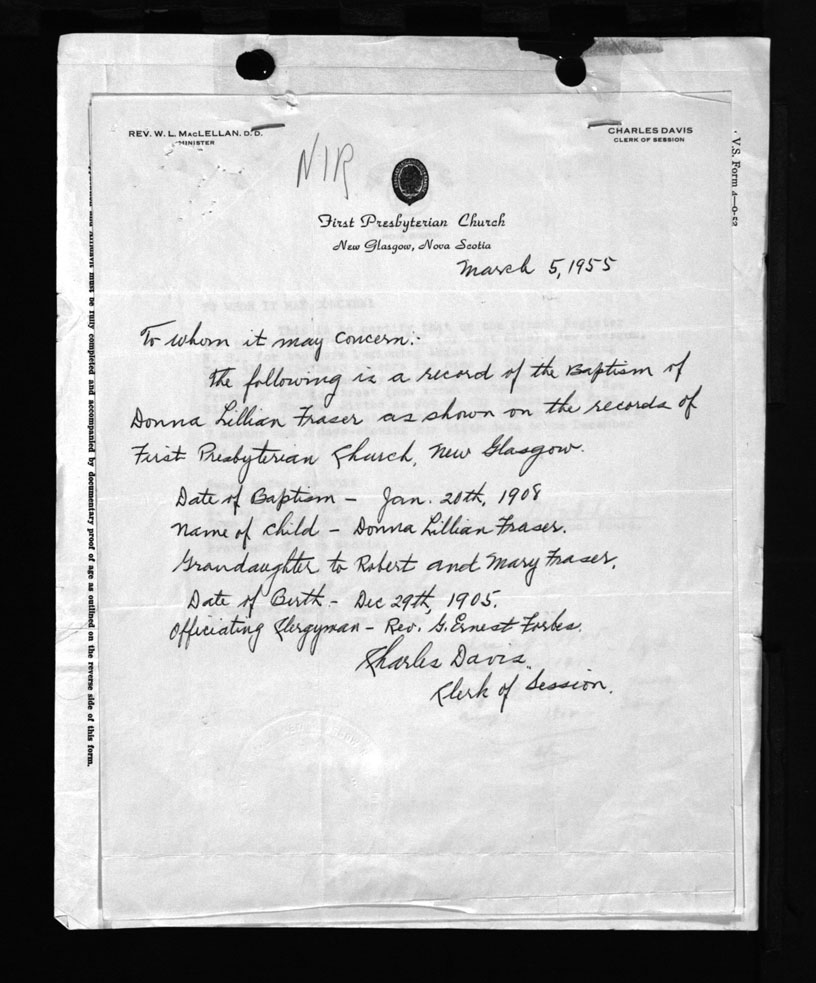 REV. W. L. MACLELLAN, D.D.
MINISTER
CHARLES DAVIS
CLERK OF SESSION
NIR
First Presbyterian Church
New Glasgow, Nova Scotia
March 5, 1955
To whom it may concern:-
The following is a record of the Baptism of
Donna Lillian Fraser as shown on the records of
First Presbyterian Church, New Glasgow.
Date of Baptism - Jan. 20th, 1908
Name of child - Donna Lillian Fraser.
Grandaughter to Robert and Mary Fraser.
Date of Birth - Dec 29th, 1905.
Officiating Clergyman - Rev. G. Ernest Forbes.
Charles Davis.
Clerk of Session.
V.S. Form 4-9-52
must be fully completed and accompanied by documentary proof of age as outlined on the reverse side of this form.